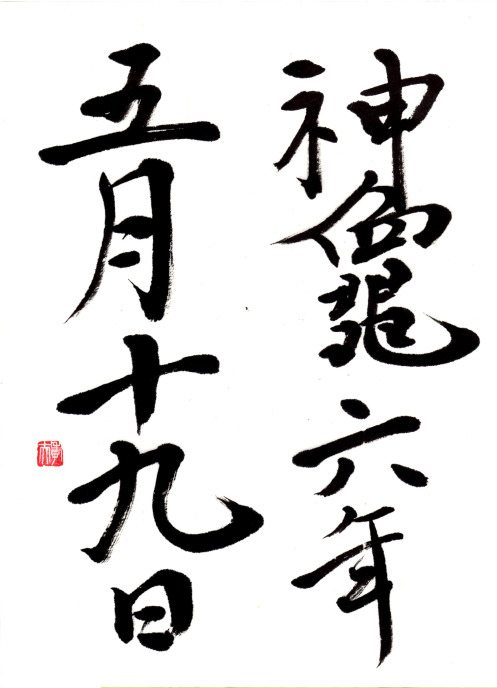 神龜六年
五月十九日